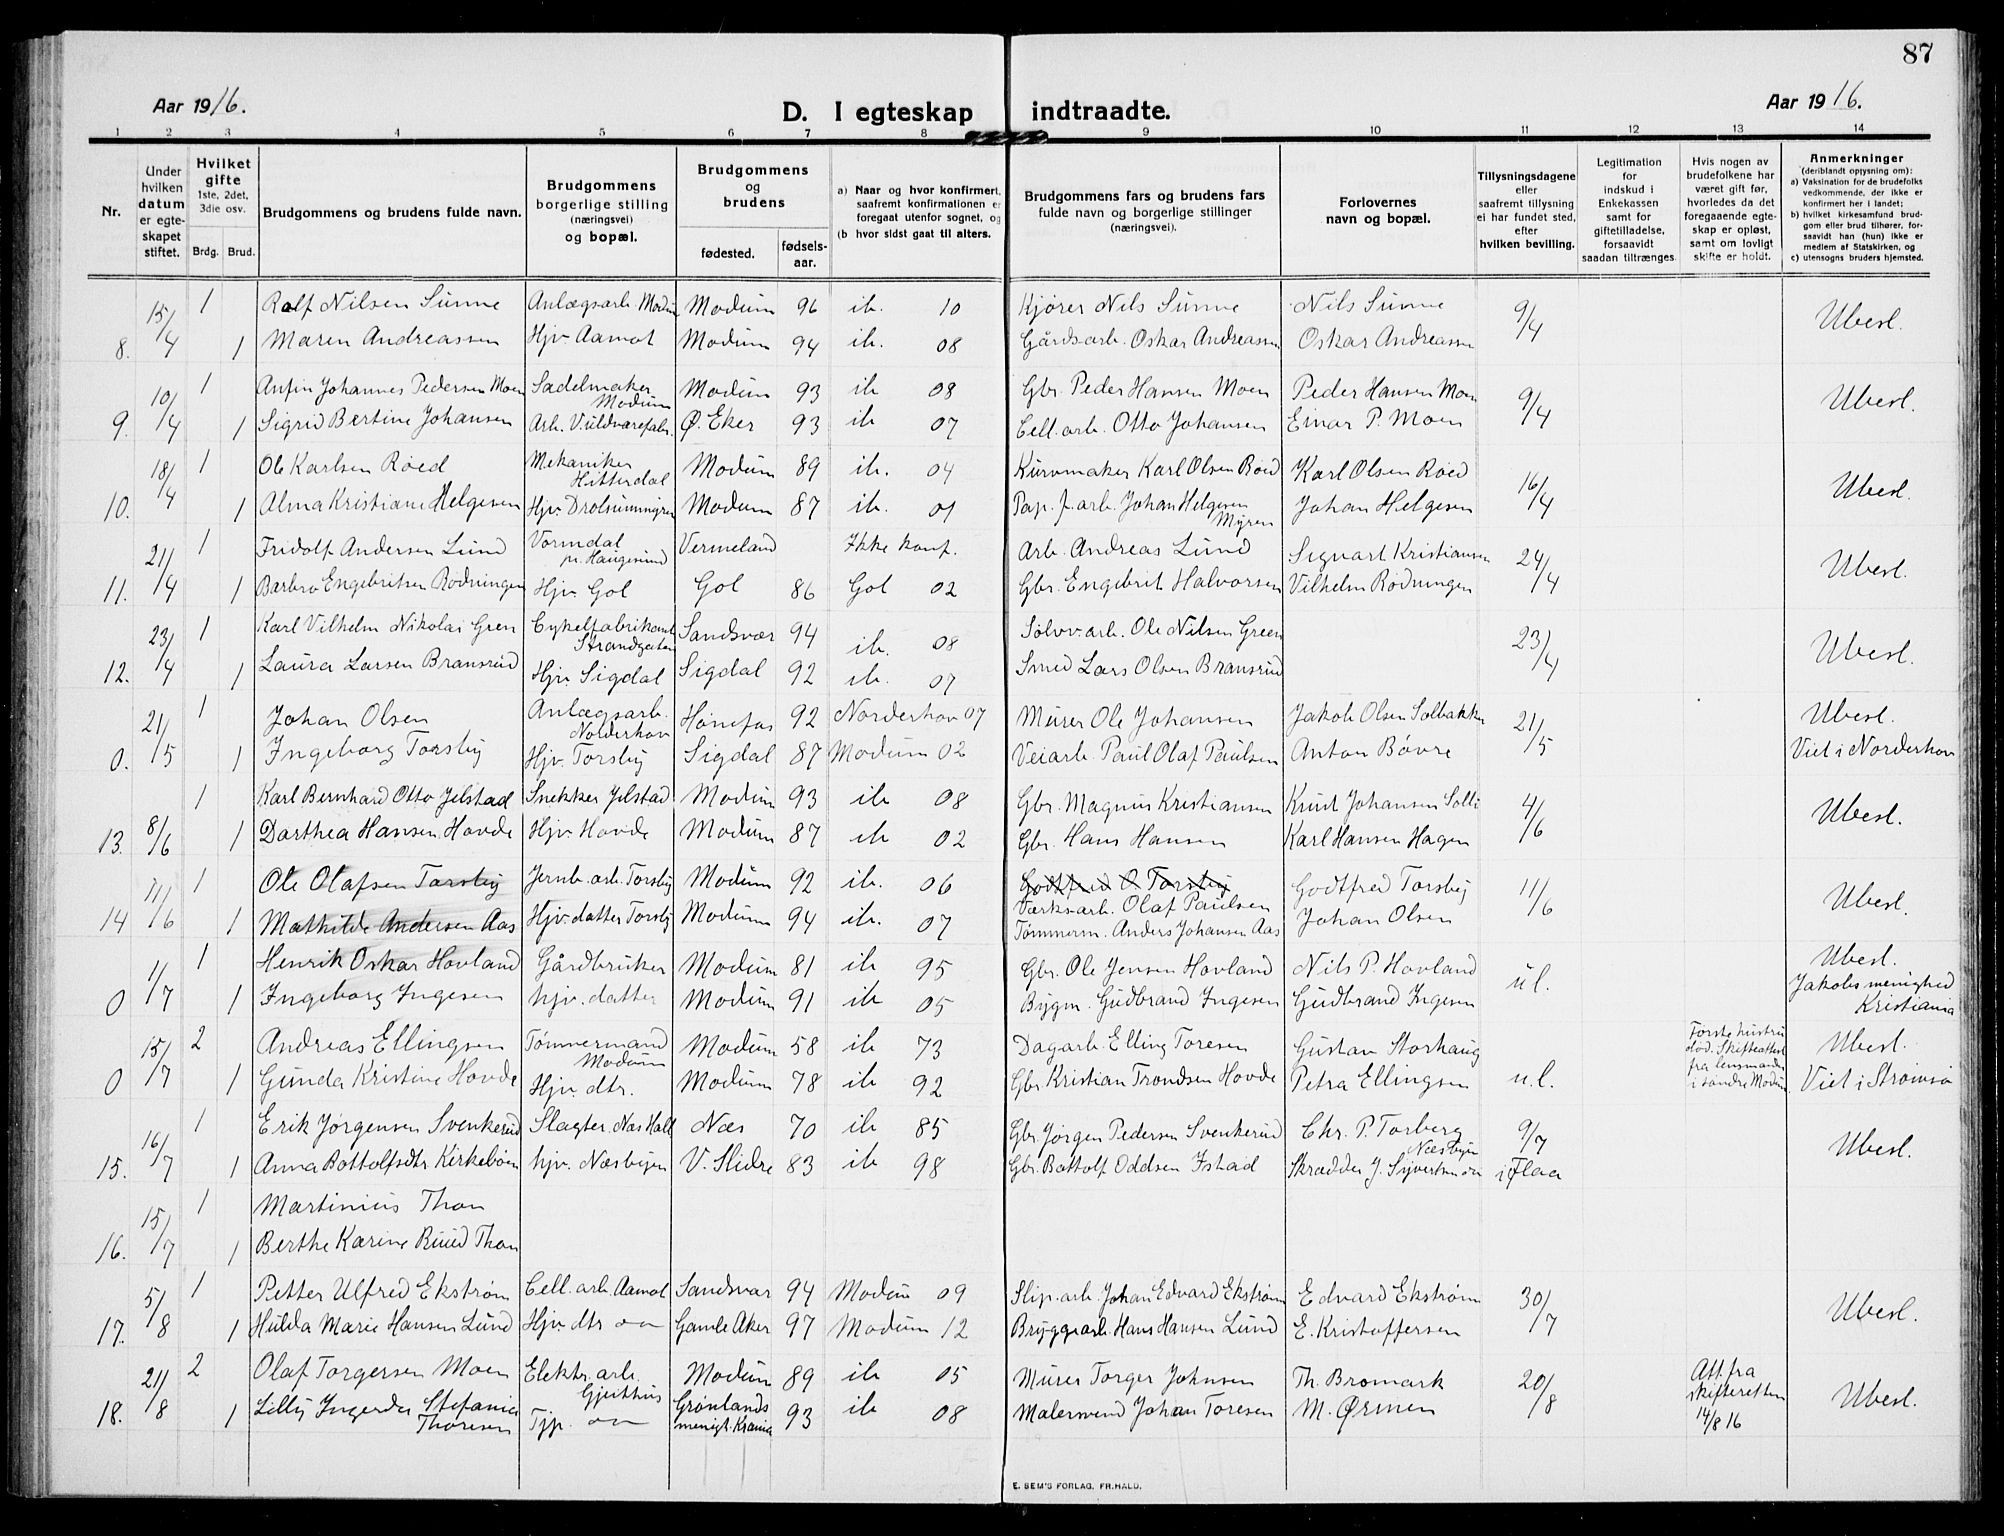 87
Aar 1916.
D. I egteskap indtraadte.
Aar 1916.
1 2 3 4 5 6 7 8 9 10 11 12 13 14
Nr.
Under hvilken datum er egteskapet stiftet.
Hvilket gifte 1ste, 2det, 3die osv.
Brdg. Brud.
Brudgommens og brudens fulde navn.
Brudgommens borgerlige stilling (næringsvei) og bopæl.
Brudgommens og brudens
fødested. fødselsaar.
a) Naar og hvor konfirmert, saafremt konfirmationen er foregaat utenfor sognet, og
(b hvor sidst gaat til alters.
Brudgommens fars og brudens fars fulde navn og borgerlige stillinger (næringsvei).
Forlovernes navn og bopæl.
Tillysningsdagene eller saafremt tillysning ei har fundet sted, efter hvilken bevilling.
Legitimation for indskud i Enkekassen samt for giftetilladelse, forsaavidt saadan tiltrænges.
Hvis nogen av brudefolkene har været gift før, hvorledes da det foregaaende egteskap er opløst, samt om lovligt skifte er holdt.
Anmerkninger (deriblandt opysning om):
a) Vaksination for de brudefolks vedkommende, der ikke er konfirmert her i landet;
b) hvilket kirkesamfund brudgom eller brud tilhører, forsaavidt han (hun) ikke er medlem af Statskirken, og
c) utensogns bruders hjemsted.
15/4 1 Rolf Nilsen Sunne Anlægsarb. Modum Modum 96 ib. 10 Kjører Nils Sunne Nils Sunne 9/4 Ubesl.
8. 1 Maren Andreassen Hjv. Aamot Modum 94 ib. 08 Gårdsarb. Oskar Andreassen Oskar Andreassen
10/4 1 Anfin Johannes Pedersen Moen Sadelmaker Modum Modum 93 ib 08 Gbr. Peder Hansen Moen Peder Hansen Moen 9/4 Ubesl.
9. 1 Sigrid Bertine Johansen Arb. Vuldvarefabr. Ø. Eker 93 ib 07 Cell. arb. Otto Johansen Einar P. Moen
18/4 1 Ole Karlsen Røed Mekaniker Hitterdal Modum 89 ib. 04 Kurvmaker Karl Olsen Røed Karl Olsen Røed 16/4 Ubesl.
10. 1 Alma Kristiane Helgesen Hjv. Drolsumningen Modum 87 ib. 01 Pap. f. arb. Johan Helgesen Myren Johan Helgesen
21/4 1 Fridolf Andersen Lund Vormdal n. Haugesund Vermeland Ikke konf. Arb. Andreas Lund Sigvart Kristiansen 24/4 Ubesl.
11. 1 Barbro Engebritsen Rødningen Hjv. Gol Gol 86 Gol 02 Gbr. Engebrit Halvorsen Vilhelm Rødningen
23/4 1 Karl Vilhelm Nikolai Gren Cykelfabrikant Strandgaten Sandsvær 94 ib. 08 Sølvv. arb. Ole Nilsen Green 23/4 Ubesl.
12. 1 Laura Larsen Bransrud Hjv. Sigdal Sigdal 92 ib. 07 Smed Lars Olsen Bransrud
21/5 1 Johan Olsen Anlægsarb. Nolderhov Hønefos 92 Norderhov 07 Murer Ole Johansen Jakob Olsen Solbakken 21/5 Ubesl.
0. 1 Ingeborg Torsby Hjv. Torsby Sigdal 87 Modum 02 Veiarb. Paul Olaf Paulsen Anton Bøvre Viet i Norderhov
8/6 1 Karl Bernhard Otto Jelstad Snekker Jelstad Modum 93 ib 08 Gbr. Magnus Kristiansen Knut Johansen Solli 4/6 Ubesl.
13. 1 Dorthea Hansen Hovde Hjv. Hovde Modum 87 ib 02 Gbr. Hans Hansen Karl Hansen Hagen
11/6 1 Ole Olafsen Torsby Jernb. arb. Torsby Modum 92 ib. 06 Godtfred O Torsby Værksarb. Olaf Paulsen Godtfred Torsby 11/6 Ubesl.
14 1 Mathilde Andersen Aas Hjv. datter Torsby Modum 94 ib. 07 Tømmerm. Anders Johansen Aas Johan Olsen
1/7 1 Henrik Oskar Hovland Gårdbruker Modum 81 ib 95 Gbr. Ole Jensen Hovland Nils P. Hovland u.l. Ubesl.
0 1 Ingeborg Ingesen hjv. datter Modum 91 ib 05 Bygm. Gudbrand Ingesen Gudbrand Ingesen Jakobs menighed Kristiania
15/7 2 Andreas Ellingsen Tømmermand Modum Modum 58 ib 73 Dagarb. Elling Toresen Gustav Storhaug u.l. Første hustru død. Skifteattest fra lensmanden i søndre Modum Ubesl.
0 1 Gunda Kristine Hovde Hjv. dtr. Modum 78 ib 92 Gbr. Kristian Trondsen Hovde Petra Ellingsen Viet i Strømsø
16/7 1 Erik Jørgensen Svenkerud Slagter. Næs Hall Næs 70 ib 85 Gbr. Jørgen Pedersen Svenkerud Chr. P. Torberg Næsbyen 9/7 i Flaa Ubesl.
15. 1 Anna Bottolfsdtr Kirkebøen hjv. Næsbyen V. Slidre 83 ib 98 Gbr. Bottolf Oddsen Ístad Skrædder J. Syvertsen
15/7 1 Martinius Thon
16. 1 Berthe Karine Ruud Thon
5/8 1 Petter Ulfred Ekstrøm Cell. arb. Aamot Sandsvær 94 Modum 09 Slip. arb. Johan Edvard Ekstrøm Edvard Ekstrøm 30/7 Ubesl.
17. 1 Hulda Marie Hansen Lund Hjv. dtr Gamle Aker 97 Modum 12 Bryggearb. Hans Hansen Lund E. Kristoffersen
21/8 2 Olaf Torgersen Moen Elektr. arb. Gjethus Modum 89 ib 05 Murer Torger Johnsen Th. Bromark 20/8 Att. fra skifteretten 14/8 16 Ubesl.
18. 1 Lilly Ingerda Stefania Thoresen Tjp. Grønlands menigt. Krania 93 ib 08 Malersvend Johan Toresen M. Ørmen
E. SEM'S FORLAG, FR.HALD.